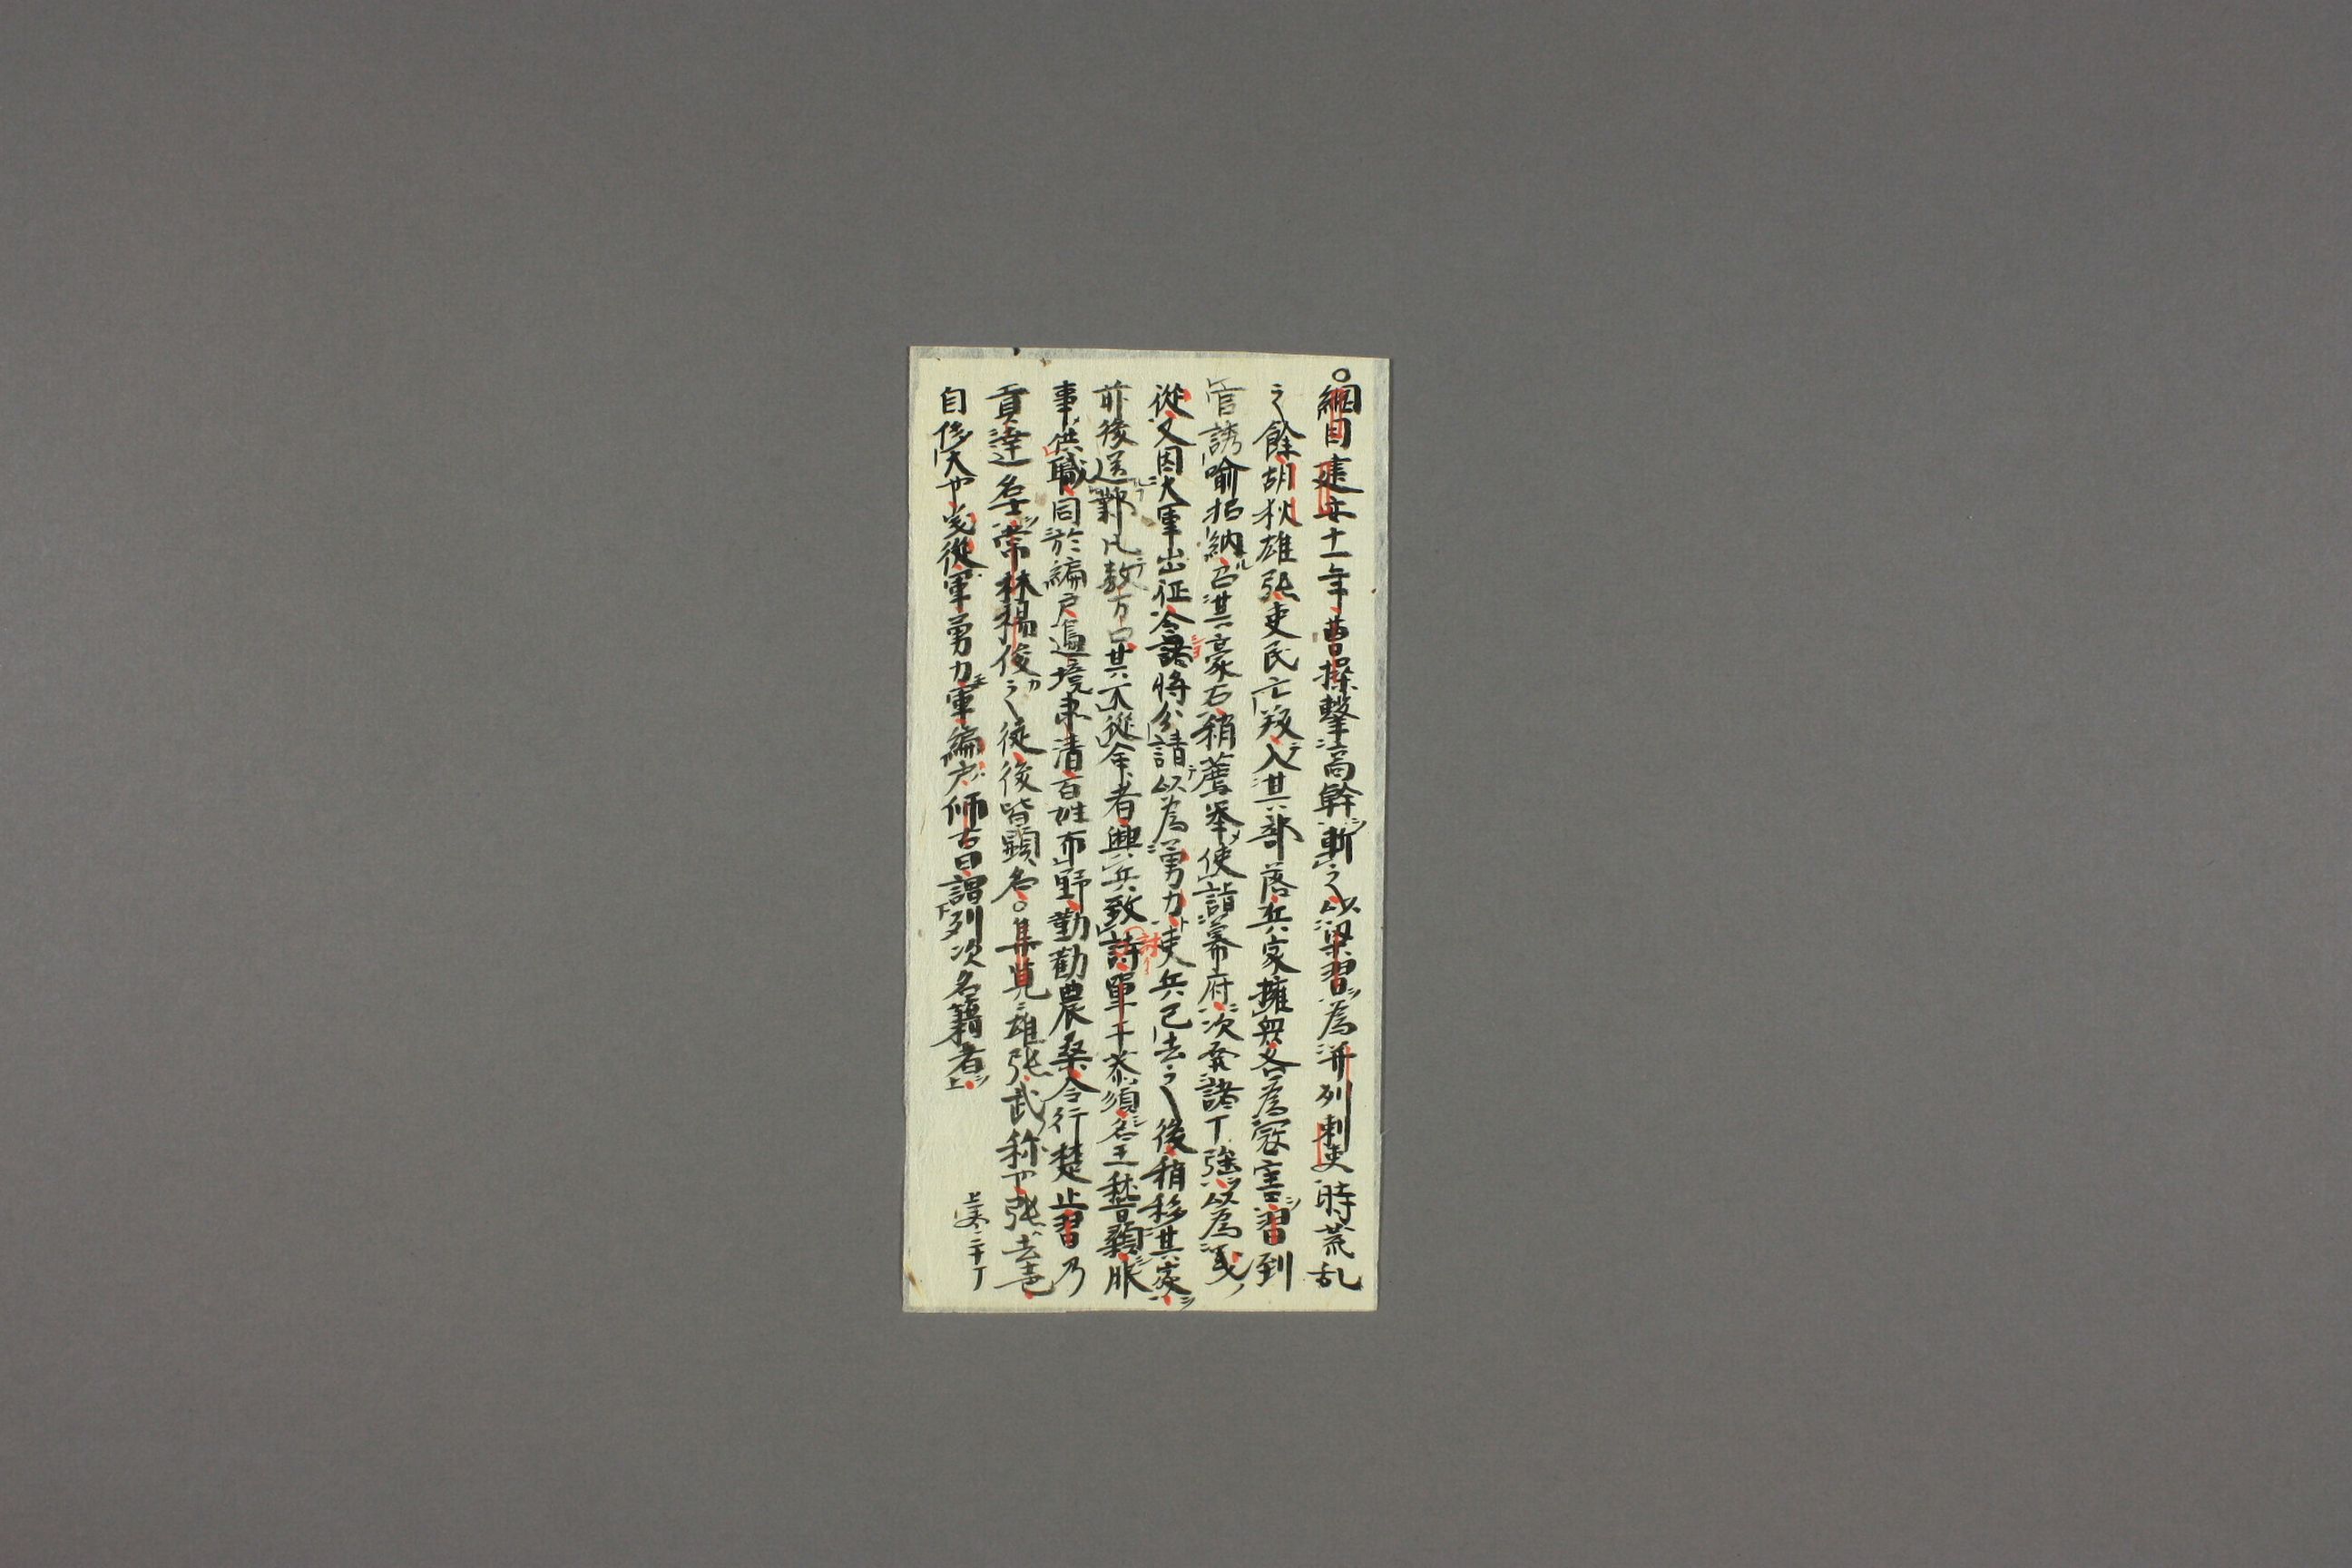 ○綱目建安十一年曹操擊高幹斬之以梁習為并州刺吏時荒乱
之餘胡狄雄張吏民亡叛入其部落兵家擁衆各為寇害習到
官誘喻招納召其豪右稍薦举使詣幕府次発諸丁強以為義
從又因大軍出征令諸将分請以為勇力吏兵已去之後稍移其家
前後送鄴凡数万口其不從命者興兵致詩單于恭須名王稽顙服
事供職同於編戸邊境粛清百姓布野勤勸農桑令行禁止習乃
貢達名士常林楊俊之徒後皆顕名○集覧雄張武称也張去聲
自侈大也義從軍勇力軍編戸師古曰謂列次名籍者